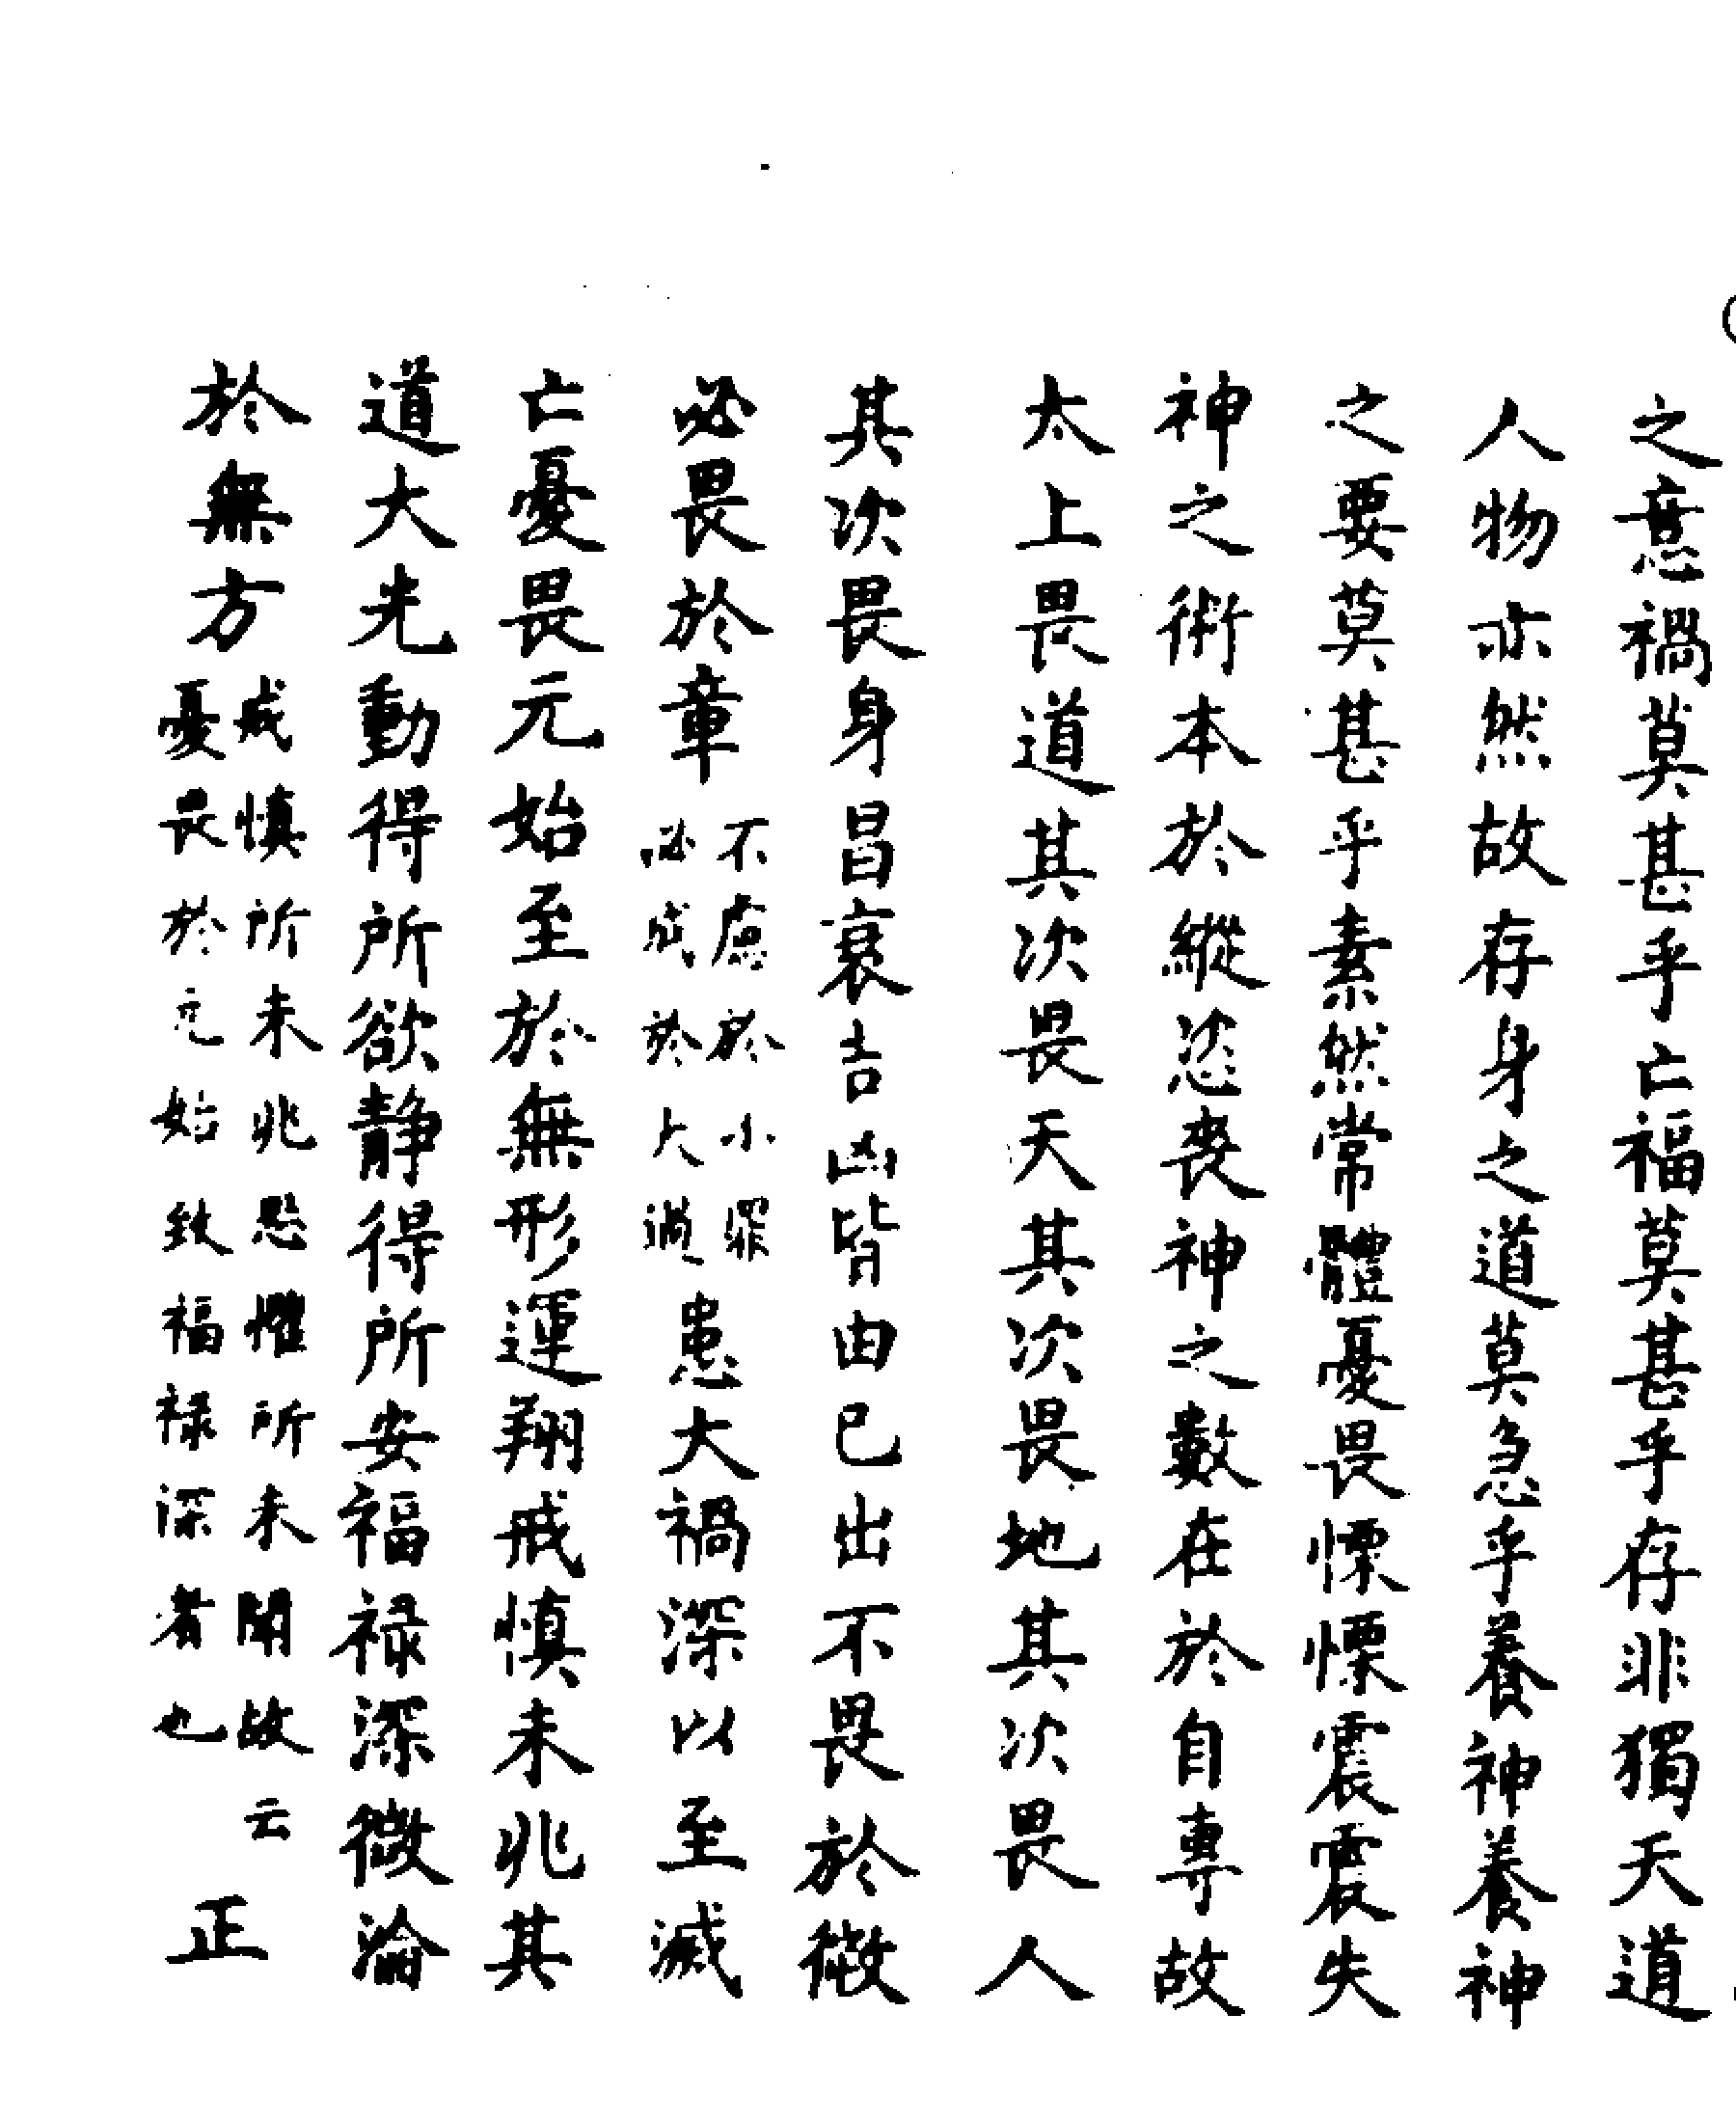 之意禍莫甚乎亡福莫甚乎存非獨天道
人物亦然故存身之道莫急乎養神養神
之要莫甚乎素然常體憂畏慄慄震震失
神之術本於縱恣喪神之數在於自專故
太上畏道其次畏天其次畏地其次畏人
其次畏身昌衰吉凶皆由已出不畏於微
必畏於章不慮於小罪必成於大過患大禍深以至滅
亡憂畏元始至於無形運翔戒慎未兆其
道大光動得所欲靜得所安福禄深微淪
於無方戒慎所未兆恐懼所未聞故云憂畏於元始致福禄深者也正